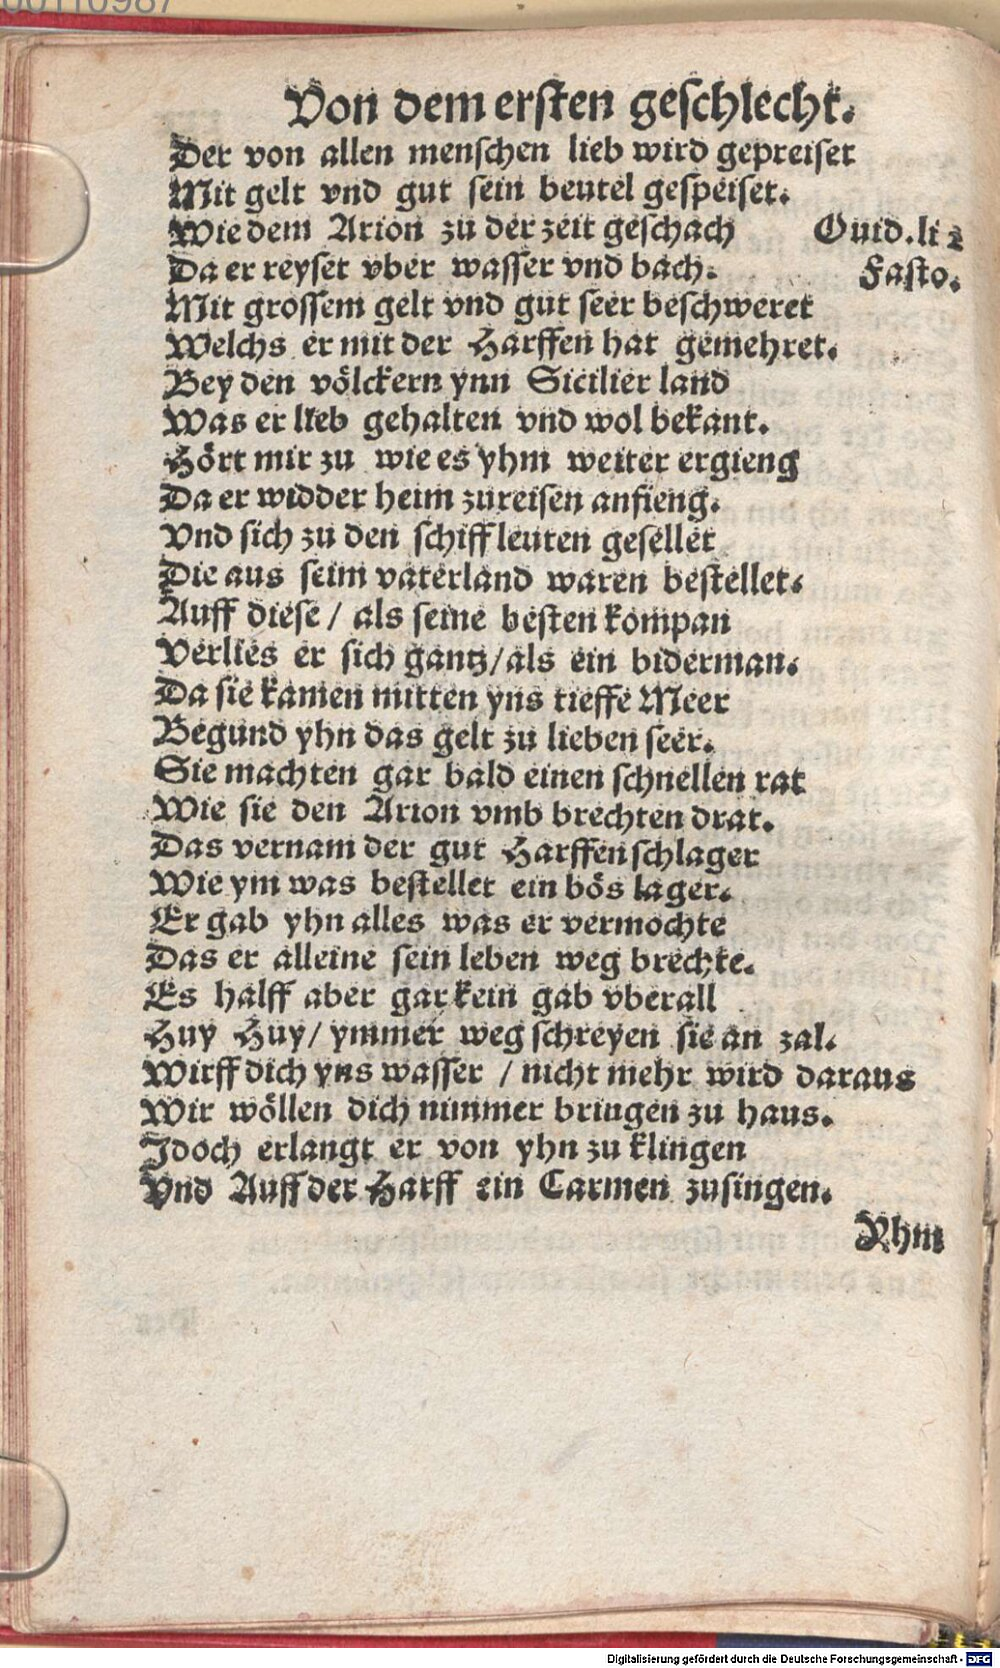 00110987
Von dem ersten geschlecht.
Der von allen menschen lieb wird gepreiset
Mit gelt vnd gut sein beutel gespeiset.
Wie dem Arion zu der zeit geschach
Ouid.li 2
Da er reyset vber wasser vnd bach.
Fasto.
Mit grossem gelt vnd gut seer beschweret
Welchs er mit der Harffen hat gemehret.
Bey den völckern ynn Sicilier land
Was er lieb gehalten vnd wol bekant.
Hört mir zu wie es yhm weiter ergieng
Da er widder heim zureisen anfieng.
Vnd sich zu den schiffleuten gesellet
Die aus seim vaterland waren bestellet.
Auff diese / als seine besten kompan
Verlies er sich gantz/als ein biderman.
Da sie kamen mitten yns tieffe Meer
Begund yhn das gelt zu lieben seer.
Sie machten gar bald einen schnellen rat
Wie sie den Arion vmb brechten drat.
Das vernam der gut Harffenschlager
Wie ym was bestellet ein bös lager.
Er gab yhn alles was er vermochte
Das er alleine sein leben weg brechte.
Es halff aber gar kein gab vberall
Huy Huy/ ymmer weg schreyen sie an zal.
Wirff dich yns wasser / nicht mehr wird daraus
Wir wöllen dich nimmer bringen zu haus.
Jdoch erlangt er von yhn zu klingen
Vnd Auff der Harff ein Carmen zusingen.
Yhm
Digitalisierung gefördert durch die Deutsche Forschungsgemeinschaft - DFG